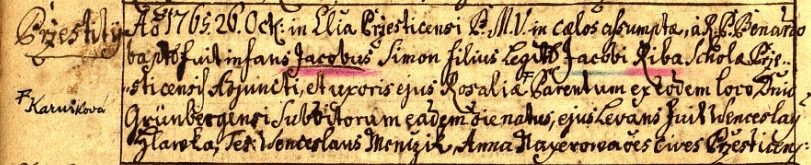 Przestity
Aō 1765. 26. Octb. in Ecclia Przesticensi B.M.V. in cœlos assumptæ, à R.P. Benardo
baptō fuit infans Jacobus Simon filius Legitt. Jacobi Riba Scholæ Prze-
sticensis Adjuncti, et uxoris ejus Rosaliæ Parentum ex eodem loco Dnii
F. Karníková
Grünbergensi Subditorum eadem die natus, ejus Levans fuit Wenceslaus
Hlawka, Tes: Wenceslaus Menzik, Anna Naxerowa oēs Cives Przesticens: